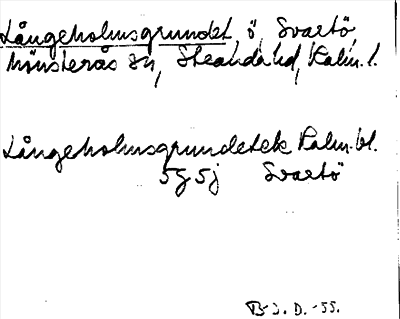 Långeholmsgrundet, ö, Svartö,
Mönsterås sn, Stranda hd, Kalm. l.
Långeholmsgrundet ek Kalm. bl.
5g 5j Svartö
B. J. D. -55.